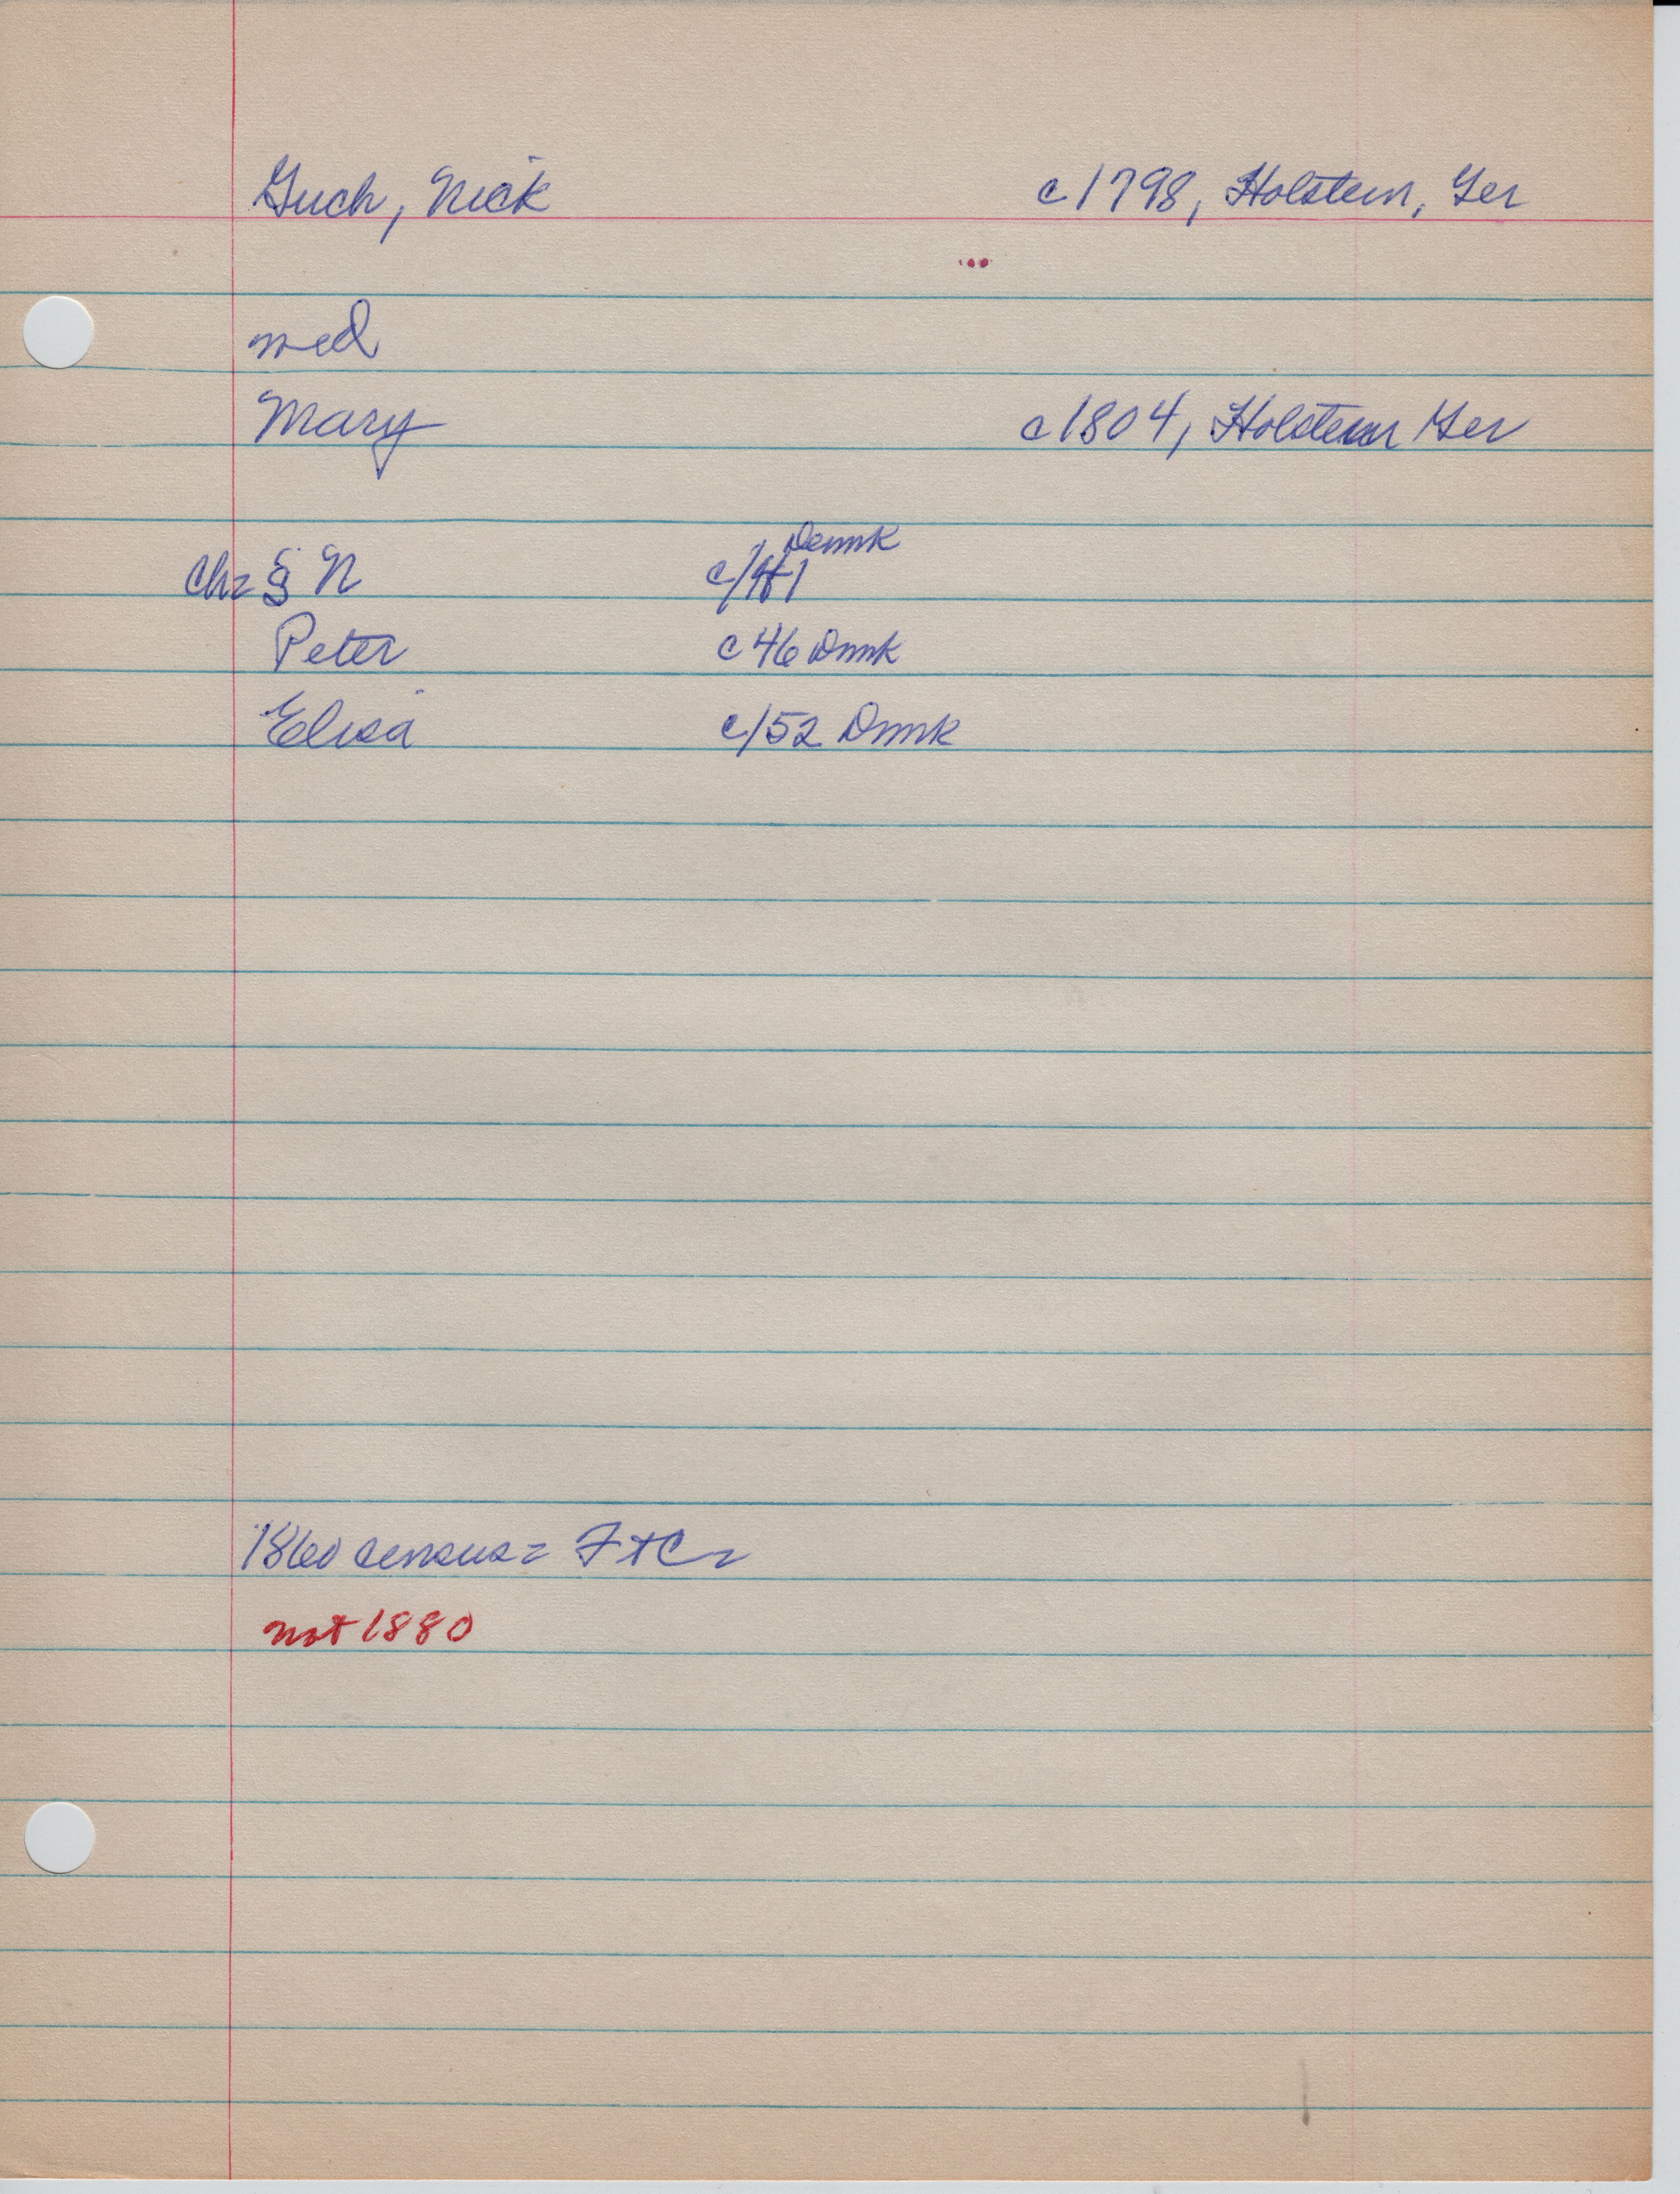 Guch, Nick c1798, Holstein, Ger
med
Mary c1804, Holstein Ger
Denmk
Ch= N c/41
Peter c46 Dnmk
Elisa c/52 Dnmk
1860 census= F+C=
not 1880